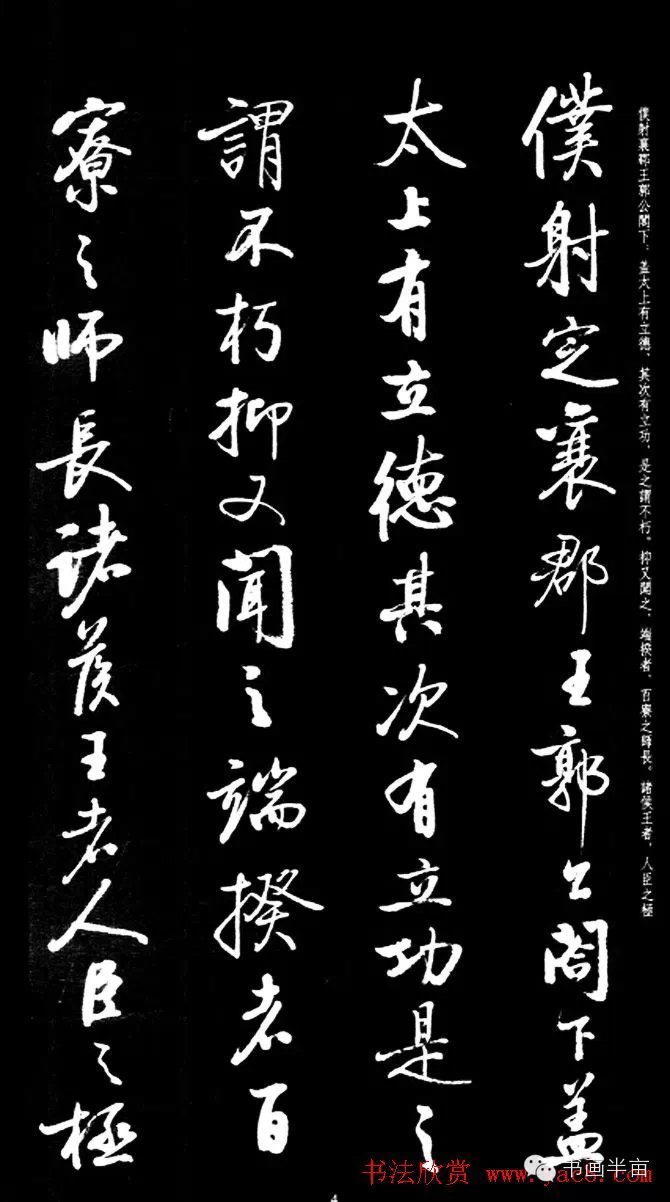 僕射襄郡王郭公閣下。盖太上有立德、其次有立功、是之謂不朽。抑又聞之、端揆者、百寮之師長。諸侯王者、人臣之極
僕射定襄郡王郭公閤下盖
太上有立德其次有立功是之
謂不朽抑又聞之端揆者百
寮之師長諸侯王者人臣之極
书法欣赏
书画半亩
4